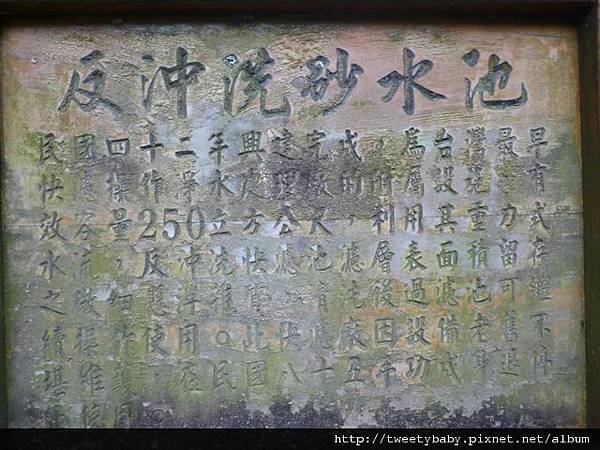 反沖洗砂水池
民國四十二年興建完成，為台灣最早
快濾操作淨水處理廠的附屬設施 有
效容量250立方公尺，利用其重力式
水流，反沖洗快濾池濾層面積留存
之 懸浮雜 後過濾池可繼
續操作使用。此快濾廠因設備老舊不
堪維護，在民國八十五年功成身退停
http://tweetybaby.pixnet.net/album